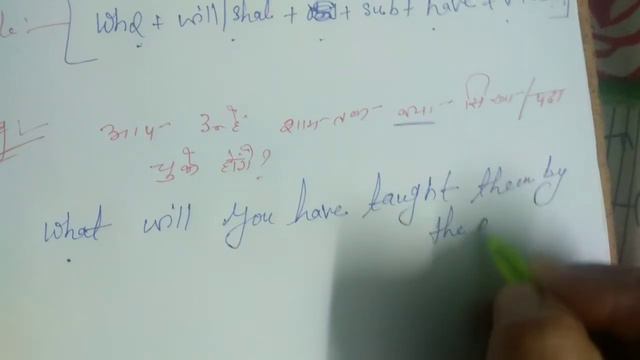 Wh2 + will/shal + + sub + have +
आप उन्हें शाम तक क्या सिखा/पढ़ा
चुके होंगे?
What will you have taught them by
the